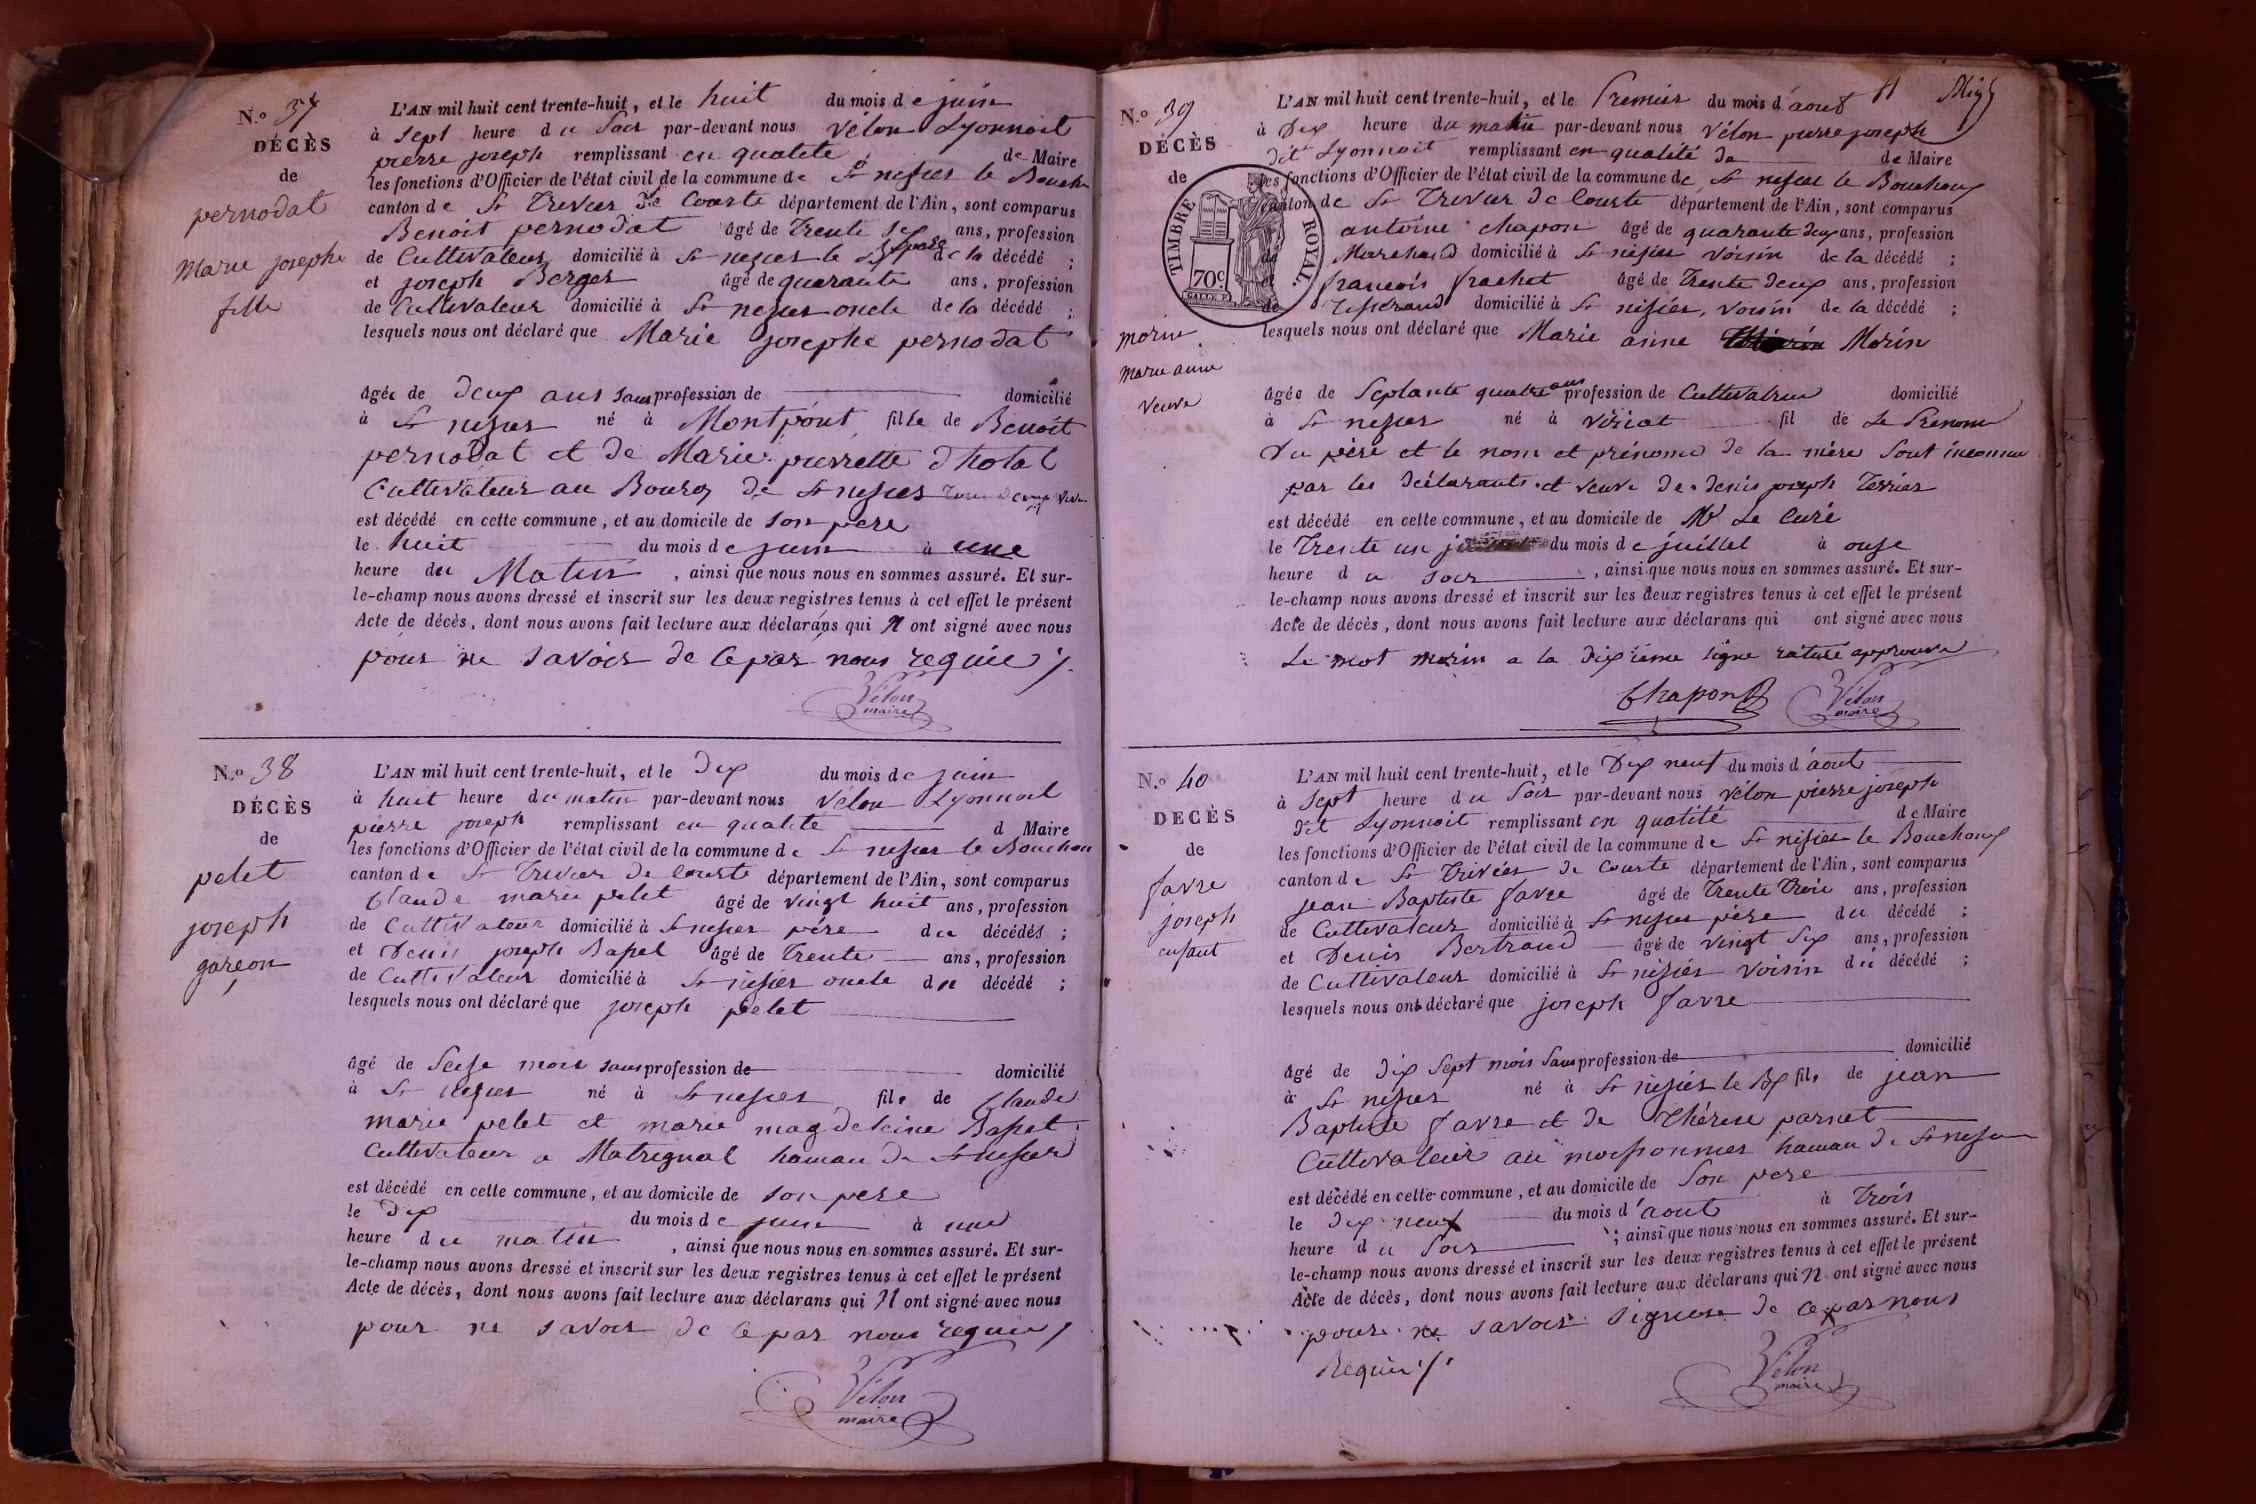 N.º 37
DÉCÈS
de
pernodat
Marie josephe
fille
L'AN mil huit cent trente-huit, et le huit du mois de juin
à sept heure du Soir par-devant nous Vélon Lyonnoit
pierre joseph remplissant en qualité de Maire
les fonctions d'Officier de l'état civil de la commune de St nisier le Bouchu
canton de St Trivier de Courte département de l'Ain, sont comparus
Benoit pernodat âgé de Trente ans, profession
de Cultivateur domicilié à St nisier le père de la décédé ;
et joseph Berger âgé de quarante ans, profession
de Cultivateur domicilié à St nisier oncle de la décédé ;
lesquels nous ont déclaré que Marie josephe pernodat
âgée de deux ans sans profession de domicilié
à St nisier né à Montpont fille de Benoit
pernodat et de Marie pierrette dhotal
Cultivateur au Bourg de St nisier
est décédé en cette commune, et au domicile de son pere
le huit du mois de juin à une
heure du Matin, ainsi que nous nous en sommes assuré. Et sur-
le-champ nous avons dressé et inscrit sur les deux registres tenus à cet effet le présent
Acte de décès, dont nous avons fait lecture aux déclarans qui N ont signé avec nous
pour ne savoir de ce par nous requie /.
Vélon
maire
N.º 38
DÉCÈS
de
pelet
joseph
garçon
L'AN mil huit cent trente-huit, et le Dix du mois de juin
à huit heure du matin par-devant nous Vélon Lyonnoit
pierre joseph remplissant en qualité d Maire
les fonctions d'Officier de l'état civil de la commune de St nisier le Bouchou
canton de St Trivier de Courte département de l'Ain, sont comparus
Claude marie pelet âgé de vingt huit ans, profession
de Cultivateur domicilié à St nisier père du décédés ;
et Denis joseph Basset âgé de Trente ans, profession
de Cultivateur domicilié à St nisier oncle du décédé ;
lesquels nous ont déclaré que joseph pelet
âgé de Seize mois sans profession de domicilié
à St nisier né à St nisier fils de Claude
marie pelet et marie magdeleine Basset
Cultivateur a Matrignal hamau de St nisier
est décédé en cette commune, et au domicile de son pere
le Dix du mois de juin à une
heure du matin, ainsi que nous nous en sommes assuré. Et sur-
le-champ nous avons dressé et inscrit sur les deux registres tenus à cet effet le présent
Acte de décès, dont nous avons fait lecture aux déclarans qui N ont signé avec nous
pour ne savoir de ce par nous requie /
Vélon
maire
N.º 39
DÉCÈS
de
TIMBRE ROYAL.
70 c.
morin
marie anne
veuve
L'AN mil huit cent trente-huit, et le Premier du mois d'aout
à Dix heure du matin par-devant nous Vélon pierre joseph
dit Lyonnoit remplissant en qualité de de Maire
les fonctions d'Officier de l'état civil de la commune de St nisier le Bouchoux
canton de St Trivier de Courte département de l'Ain, sont comparus
antoine chapon âgé de quarante deux ans, profession
de Marchand domicilié à St nisier voisin de la décédé ;
et françois frachet âgé de Trente deux ans, profession
de Tisserand domicilié à St nisier, voisin de la décédé ;
lesquels nous ont déclaré que Marie anne Morin
âgée de Septante quatre ans profession de Cultivatrice domicilié
à St nisier né à viriat fil de Le Prenom
Du père et le nom et prénoms de la mère Sont inconnu
par les Déclarants et veuve de denis joseph Terrier
est décédé en cette commune, et au domicile de Mr Le Curé
le Trente un du mois de juillet à onze
heure du soir, ainsi que nous nous en sommes assuré. Et sur-
le-champ nous avons dressé et inscrit sur les deux registres tenus à cet effet le présent
Acte de décès, dont nous avons fait lecture aux déclarans qui ont signé avec nous
Le mot morin a la dixième ligne raturé approuvé
Chapon
Vélon
maire
N.º 40
DÉCÈS
de
favre
joseph
enfant
L'AN mil huit cent trente-huit, et le Dix neuf du mois d'aout
à Sept heure du Soir par-devant nous Vélon pierre joseph
dit Lyonnoit remplissant en qualité de Maire
les fonctions d'Officier de l'état civil de la commune de St nisier le Bouchoux
canton de St Trivier de Courte département de l'Ain, sont comparus
jean Baptiste favre âgé de Trente Trois ans, profession
de Cultivateur domicilié à St nisier père du décédé ;
et Denis Bertrand âgé de vingt Six ans, profession
de Cultivateur domicilié à St nisier voisin du décédé ;
lesquels nous ont déclaré que joseph favre
âgé de dix Sept mois Sans profession de domicilié
à St nisier né à St nisier le Bx fils de jean
Baptiste favre et de Thérèse parnet
Cultivateur au moissonnier hamau de St nisier
est décédé en cette commune, et au domicile de Son pere
le dix neuf du mois d'aout à Trois
heure du Soir ; ainsi que nous nous en sommes assuré. Et sur-
le-champ nous avons dressé et inscrit sur les deux registres tenus à cet effet le présent
Acte de décès, dont nous avons fait lecture aux déclarans qui N ont signé avec nous
pour ne savoir Signer de ce par nous
Requie /.
Vélon
maire